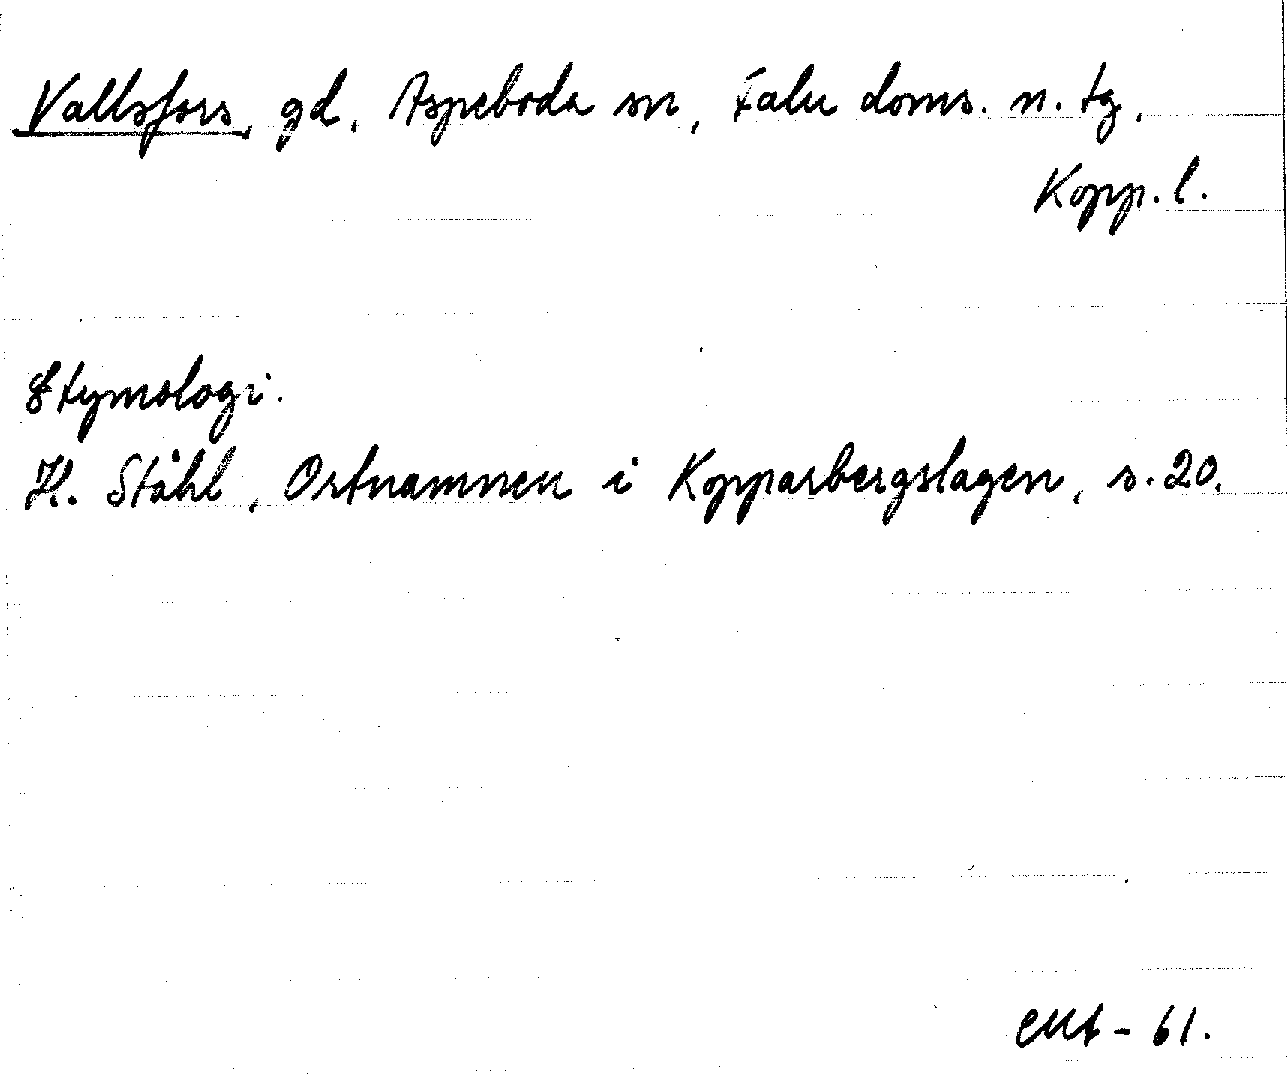 Vallsfors, gd, Aspeboda sn, Falu doms. n. tg.
Kopp. l.
Etymologi.
H. Ståhl, Ortnamnen i Kopparbergslagen, s. 20.
- 61.